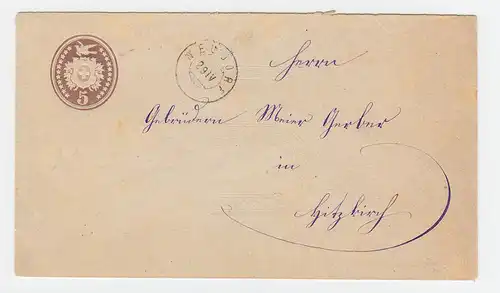 5
29 IV
Herrn
Gebrüdern Meier Gerber
in
Hitzkirch